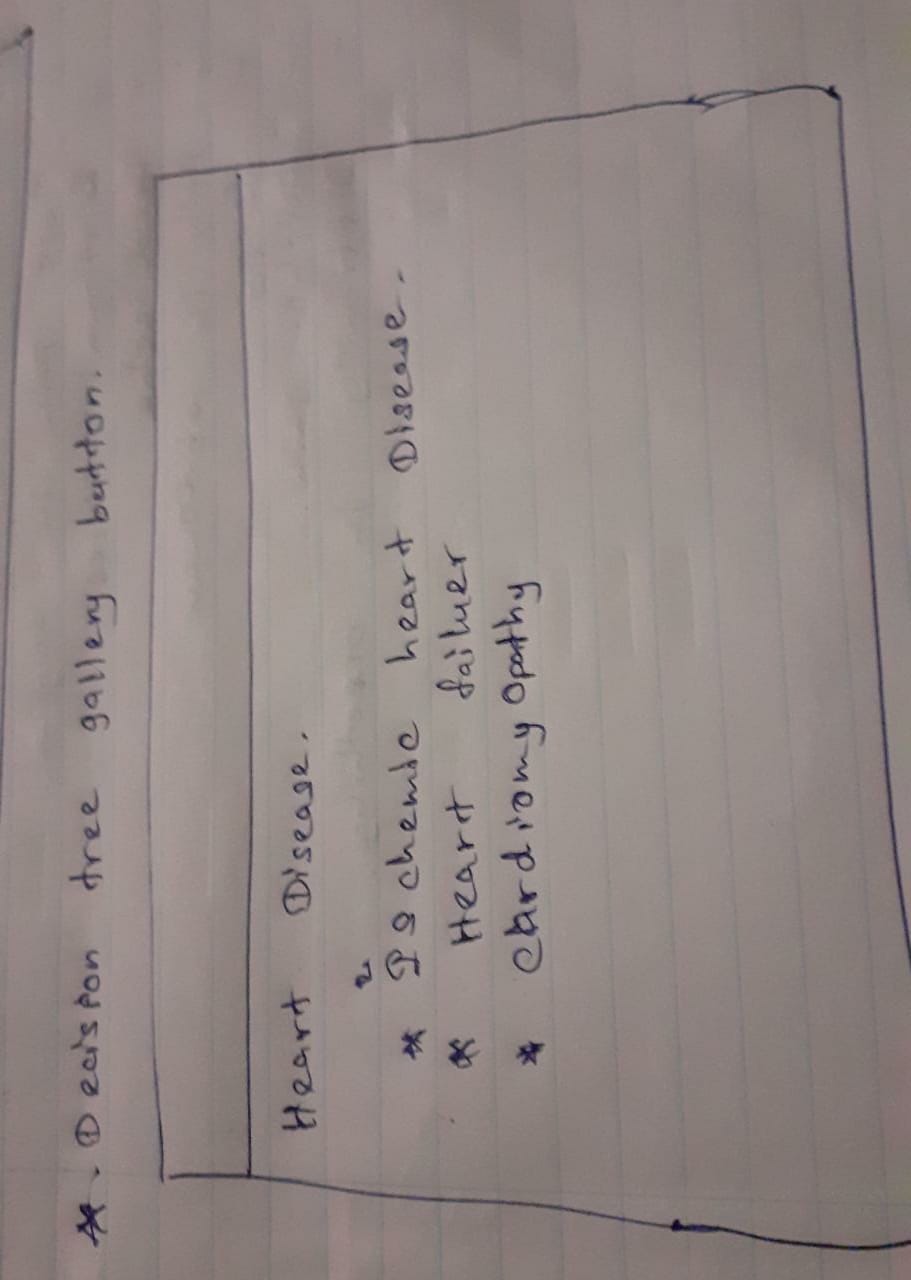 * . Decispon tree gallery button.
Heart Disease.
* Ischemic heart Disease.
* Heart failuer
* Cardiomyopathy